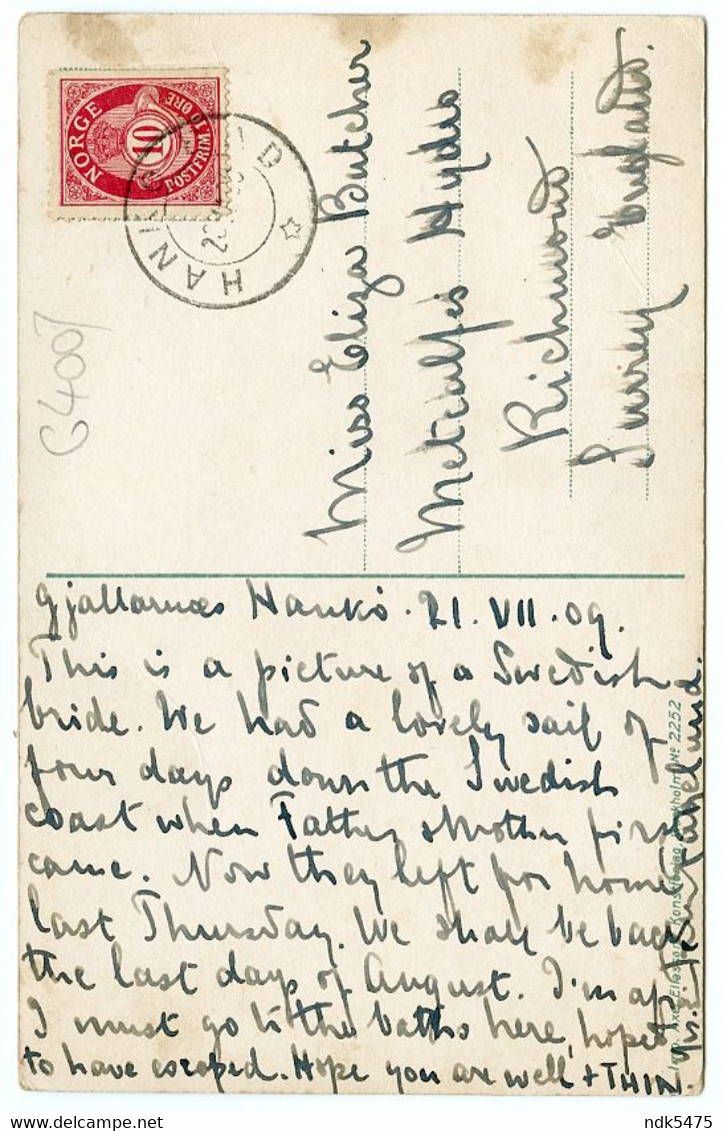 NORGE
10
POSTFRIM. 10 ØRE
HAN
G4007
Miss Eliza Butcher
Metcalfes Hydro
Richmond
Surrey England.
Gjallarnæs Hankö. 21. VII. 09.
This is a picture of a Swedish
bride. We had a lovely sail of
four days down the Swedish
coast when Father & Mother first
came. Now they left for home
last Thursday. We shall be back
the last days of August. I'm af
I must go to the baths here, hoped
to have escaped. Hope you are well & THIN.
Nº 2252
ndk5475